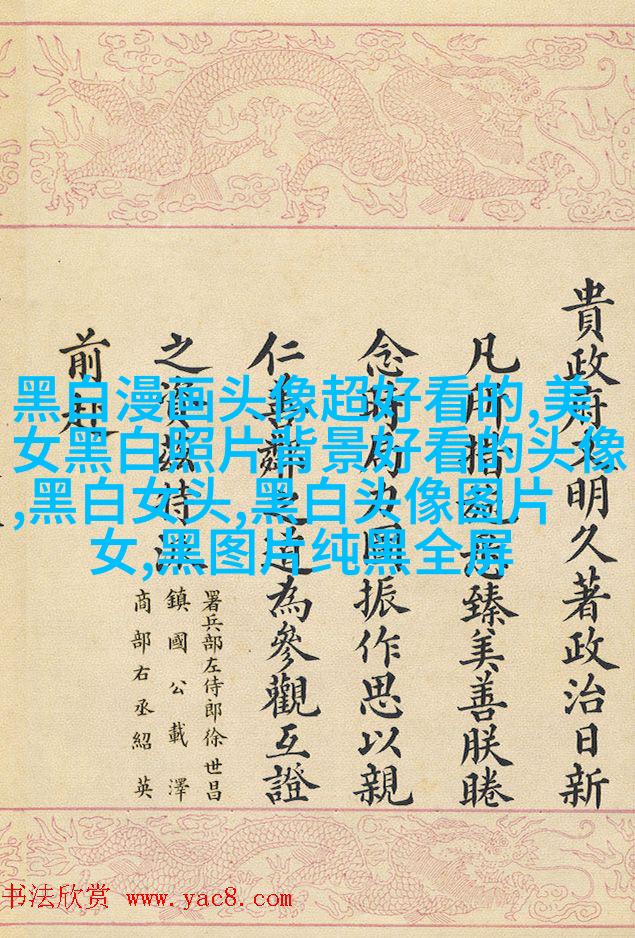 貴政府文明久著政治日新
凡所措施悉臻美善朕睠
念時局力圖振作思以親
仁善鄰之道為參觀互證
之資茲特派
署兵部左侍郎徐世昌
鎮國公載澤
商部右丞紹英
前赴
黑白漫画头像超好看的,美
女黑白照片背景好看的头像
,黑白女头,黑白头像图片
女,黑图片纯黑全屏
书法欣赏 www.yac8.com